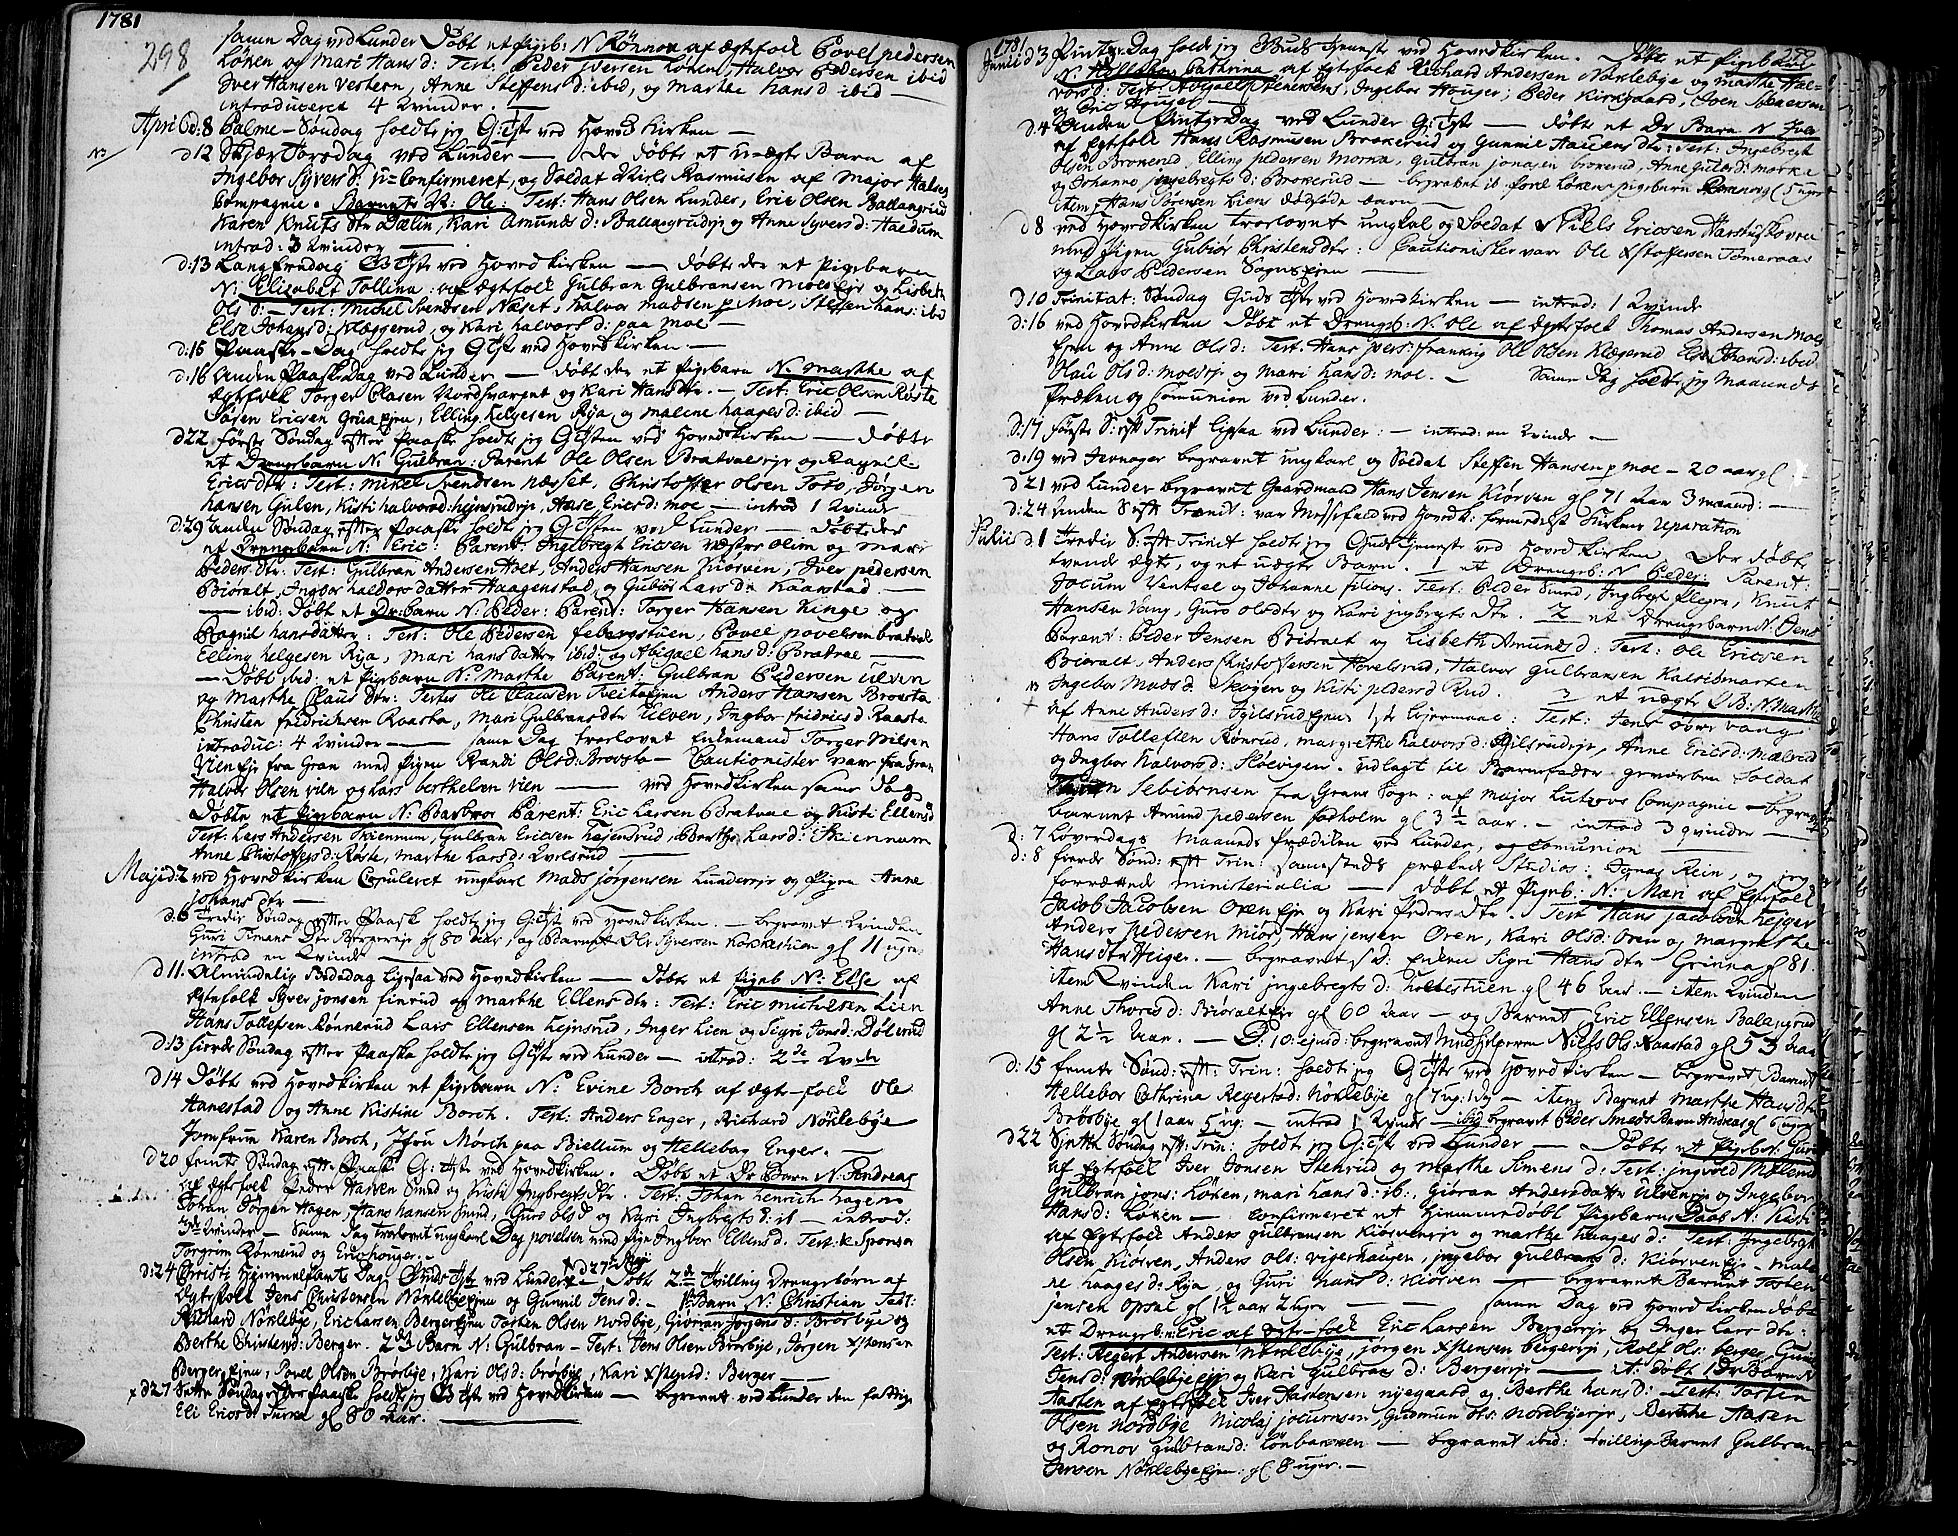 1781
298
samme Dag ved Lunder Døbt et Pigeb: N Rønnov af Ægtefolk Povel pedersen
Løken og Mari Hans d: Test: Peder Iversen Løken, Halvor Pedersen ibid
Iver Hansen Vestern, Anne Steffens d: ibid, og Marthe Hans d ibid —
introduceret 4 Qvinder. —
April d: 8 Palme-Søndag holdte jeg G: Tjste ved Hoved Kirken —
d 12 Skjær Torsdag ved Lunder — Der døbte et U-ægte Barn af
Ingebor Syvers d: U-Confirmeret, og Soldat Niels Rasmusen af Major
Compagnie. Barnets N: Ole: Test: Hans Olsen Lunder, Eric Olsen Ballangrud
Karen Knuts Dtr Dælin, Kari Amunds d: Ballangrudejr og Anne Syvers d: Haedum
introd: 3 Qvinder —
d: 13 Langfredag G Tjste ved Hoved Kirken — døbte der et Pigebarn
N: Elisabet Tollina: af Ægtefolk Gulbran Gulbransen Moe Ejr og Lisbeth
Ols d: — Test: Michel Svendsen Næset, Halvor Madsen p Moe, Steffen Hans: ibid
Else Johans d: Kleggerud, og Kari Halvors d: paa Moe —
d: 15 Paaske-Dag holdte jeg G Tjste ved Hoved Kirken —
d: 16 Anden Paaske Dag ved Lunder — døbt der et Pigebarn N. Marthe af
Ægtefolk Torger Olasen Nordhvarent og Kari Hans Dtr. — Test: Eric Olsen Røste
Ericsen Gruaejen, Elling Helgesen Rija, og Malene Haages d: ibid —
d 22 Første Søndag efter Paaske holdte jeg G Tjsten ved Hoved Kirken — Døbte
et Drengebarn N: Gulbran: Parent Ole Olsen Bratvalejr og Ragnil
Erics dtr: Test: Mickel Svendsen Næsset, Christoffer Olsen Toso, Jørgen
Hansen Gulen, Kisti Halvors d: Hejnsrudejr, Aase Erics d: Moe — introd 1 Qvinde
d: 29 Anden Søndag efter Paaske holdte jeg G Tjsten ved Lunder — Døbte der
et Drengebarn N: Eric: Parent: Ingebregt Ericsen Væstre Olim og Mari
Peders. dtr: Test: Gulbran Andersen Hoel, Anders Hansen Kiørven, Iver pedersen
Biøralt, Ingbor Haldors datter Haagenstad, og Gubiør Lars d: Kaarstad —
— ibid: Døbt et Dr: barn N: Peder: Parent: Torger Hansen Ringe og
Ragnil Hansdatter: Test: Ole Pedersen Febergstuen, Povel povelsen Bratvale
Elling Helgesen Rija, Mari Hansdatter ibid: og Abigael Hans d: Bratvae —
— Døbt ibid: et Pigebarn N: Marthe Parent: Gulbran Pedersen Ulven
og Marthe Claus Dtr: Testes Ole Clausen Tveitaejen Anders Hansen Brovsta
Christen Fredrichsen Raasta, Mari Gulbrans dtr Ulven, Ingbor Fridrics d Raasta
introduc: 4 Qvinder — samme Dag trorlovet Enkemand Torger Nilsen
Vien Ejr fra Gran med Pigen Randi Ols d: Brovsta — Cautionister vare fra Gran
Halvor Olsen Vien og Lars Berthelsen Vien — ved Hovedkirken samme Dag
Døbte et Pigebarn N: Barbroe Parent: Eric Larsen Bratvae og Kisti Ellensd
Test: Lars Andersen Skiennum, Gulbran Ericsen Hejensrud, Berthe Lars d: Skiennum
Anne Christoffers d: Røste, Marthe Lars d: Qvelsrud —
Maji d: 2 ved Hoved Kirken Copuleret ungkarl Mads Jørgensen Lunderejr og Pigen Anne
Johans dtr —
d: 6 Tredie Søndag efter Paaske holdt jeg G: Tjste ved Hovedkirken. — begravet Qvinden
Guri Simens Dtr Bergerejr gl 80 aar, og Barnet Ole Syversen Kokkestuen gl 11 uger
introd en Qvinde —
d 11. Almindelig Bededag Ligesaa ved Hovedkirken — Døbt et Pigeb N: Else af
Ægtefolk Syver Jonsen Finrud og Marthe Ellens dtr: Test: Eric Michelsen Lien
Hans Tollefsen Rønnerud Lars Ellensen Hejnsrud, Inger Lien og Sigri Jons d: Dølerud
d: 13 Fierde Søndag efter Paaske holdte jeg G Tjste ved Lunder — introd: 2 de Qvinder
d 14 Døbt ved Hovedkirken et Pigebarn N: Evine Borch af Ægte-folk Ole
Hanestad og Anne Kistine Borch. Test: Anders Enger, Richard Nöklebÿe
Jomfrum Karen Borch, Jfru Mørch paa Biellum og Hellebor Enger. —
d 20 Femte Søndag efter Paaske G: Tjste ved Hovedkirken. Døbt et Dr Barn N. Andreas
af Ægtefolk Peder Hansen Smed og Kristi Ingbregts Dtr. Test: Johan Henrich Hagen
Johan Jørgen Hagen, Hans Hansen Smed, Guro Ols d og Kari Ingbregts d: ib — introd:
3de Qvinder — Samme Dag trorlovet ungkarl Dag Povelsen med Pige Ingbor Ellens d. Test: & Sponsor
Torgrim Rønnerud og Eric Houger. —
N d 27de Maji
d: 24 Christi Himmelfarts Dag, Guds Tjste ved Lunder — Døbt 2de Tvilling Drengebørn af
Ægtefolk Jens Christensen Nöklebÿe Ejen og Gunnil Jens d: — 1te Barn N: Christian Test:
Richard Nöklebÿe, Eric Larsen Bergerejen Torsten Olsen Nordbÿe, Giøran Jørgens d: Brørbÿe og
Berthe Christens d: Berger. 2det Barn N: Gulbran — Test: Jens Olsen Brørbÿe, Jørgen Xstensen
Berger Ejen, Povel Olsen Brørbÿe, Kari Ols d: Brørbÿe, Kari Xstens d: Berger —
x d 27 Siette Søndag efter Paaske holdt jeg G Tjste ved Hovedkirken — begravet ved Lunder den fattige
Eli Erics dtr gl 80 Aar. —
1781
Junii d 3 Pintse Dag holdt jeg Guds Tjeneste ved Hovedkirken. Døbt et Pigebarn
N: Hellebor Cathrina af Ægtefolk Richard Andersen Nöklebÿe og Marthe Hal-
vors d: Test: Abigael Stenersens, Ingebor Houger; Peder Kirkegaard, Joen Stenersen
og Eric Houger —
d. 4 Anden Pintsedag ved Lunder G Tjste — døbte et Dr Barn N Iver
af Ægtefolk Hans Rasmusen Brokerud og Gunnil Hallens dtr: Test: Ingebregt
Olsen Brokerud, Elling Pedersen Morka, Gulbran Jonasen Brokerud, Anne Gulor d: Morke
og Johanne Ingebregts d: Brokerud — begravet ib Povel Løkens Pigebarn Rønnov gl 5 uger
item Hans Sørensen Liens dødfødte barn —
d 8 ved Hovedkirken trorlovet ungkal og Soldat Niels Ericsen
med Pigen Gubiør Christens dtr: Cautionister var Ole Xstoffersen Tomeraas
og Lars Pedersen Sognsejen —
d 10 Trinitat: Søndag Guds Tjste ved Hovedkirken — introd: 1 Qvinde
d: 16 ved Hovedkirken Døbt et Drengeb: N: Ole af Ægtefolk Thomas Andersen Moe
Ejen og Anne Ols d: Test: Hans Ivers: Franking Ole Olsen Klegerud Else Johans d: ibid
Olau Ols d: Moe Ejr og Mari Hans d: Moe. — Samme Dag holdte jeg Maaneds
Præken og Comunion ved Lunder.
d: 17 Første S: eft Trinit ligesaa ved Lunder: — introd: en Qvinde —
d: 19 ved Jevnager begravet ungkarl og Soldat Steffen Hansen p Moe — 20 aar gl
d 21 ved Lunder begravet Gaardmand Hans Jensen Kiörven gl 71 Aar 3 maaned: —
d: 24 Anden S eft Trinit: var Messefald ved Hovedk: formedelst Kirkens reparation
Julii d. 1 Tredie S: eft Trinit holdte jeg Guds Tjeneste ved Hoved Kirken Der døbt
tvende Ægte, og et uægte Barn. 1 et Drengeb: N Peder: Parent:
Jocum Ventsel og Johanne Filions. Test: Peder Smed, Ingbregt Klegre, Knut
Hansen Vang, Guro Olsdtr og Kari Ingbregts Dtr. 2 et Drengebarn N: Jens
Parent: Peder Jensen Biøralt og Lisbeth Amunds d: Test: Ole Ericsen
Biøralt, Anders Christoffersen Hovelsrud, Halvor Gulbransen Kalvismarken
Ingebor Mads d. Skogen og Kisti Peders d Rud. 3 et udgte P B: N: Marthe
af Anne Anders d: Igilsrud Ejens 1ste Lejermaal: Test: Jens Øvre Vang
Hans Tolleffsen Rønrud, Margrethe Halvors d: Igilsrudejr, Anne Erics d: Mælvold
og Ingbor Halvors d: Sløvigen. udlagt til Barnefader gevorben Soldat
Sebiørnsen fra Grans Sogn: af Major Lutzovs Compagnie — begravet
barnet Amund pedersen Fosholm gl 3½ aar. — introd 3 qvinder —
d: 7 Löverdags Maaneds Prædiken ved Lunder, og Comunion —
d: 8 Fierde Sønd: eft Trin: sammesteds prækede Studios: Jonas Rein, og jeg
forrettede ministerialia — Døbt et Pigeb: N: Mari af Ægtefolk
Jacob Jacobsen Oren Ejr og Kari Peders Dtr. Test Hans Jacobsen Hejger
Anders Pedersen Mior, Hans Jensen Oren, Kari Ols d: Oren og Margrethe
Hans dtr Heiger. — begravet s. D: Enken Sigri Hans dtr Grinna gl 81.
item Qvinden Kari Ingebregts d: Holtestuen gl 46 Aar. — item Qvinden
Anne Thors d: Biøralt Ejr gl 60 Aar — og Barnet Eric Ellensen Balangrud
gl 2½ Aar. — D. 10: Ejusd: begravet Medhjelperen Niels Ols: Raastad gl 53 Aar
d: 15 Femte Sønd: eft: Trin: holdt jeg G Tjste ved Hoved Kirken — begravet Barnet
Hellebor Cathrina Regerstad: Nöklebÿe gl 7 ug: 1 Dg — item Barnet Marthe Hans dtr
Brørbÿe gl 1 aar 5 ug: — introd 1 Qvinde — ibid begravet Peder Smeds Barn Andreas gl 6 uger
d 22 Siette Søndag eft: Trin: holdt jeg G: Tjste ved Lunder — Døbt et Pigeb: Guri
af Ægtefolk Iver Jonsen Stenrud og Marthe Simens d: Test: Ingvold Mælend
Gulbran Jons: Løken, Mari Hans d: ib:, Giøran Anders datter Ulvenejr og Ingebor
Hans d: Løken — confirmeret et Hjemmedøbt Pigebarns Daab N: Kisti
af Ægtefolk Anders Gulbransen Kiörvenejr og Marthe Haages d: Test: Ingebregt
Olsen Kiörven, Anders Ols: Vigerhaugen, Ingebor Gulbrans d: Kiörven Ejr — Male
ne Haages d: Rija, og Guri Hans d: Kiörven — begravet Barnet Torsten
Jensen Opsal gl 1½ Aar 2 uger — samme Dag ved Hovedkirken døbt
et Drengeb: n: Eric af Ægte-folk Eric Larsen Bergerejr og Inger Lars dtr:
Test: Regert Andersen Nöklebÿe, Jørgen Xstensen Bergerejr, Rolf Ols: Berger, Gunil
Jens d: Nöklebÿe Ejr og Kari Gulbrans d: Bergerejr — it: døbt Dr Barn N
Aasten af Ægtefolk Iver Aastensen Nÿegaard og Berthe Hans d: Test: Torsten
Olsen Nordbÿe Nicolaj Jocumsen, Gudmun Ols: Nordbÿejr, Berthe Aasen
og Ronov Gulbrans d: Lønbakken — begravet ibid: tvilling Barnet Gulbran
Jensen Nöklebÿe Ejen: gl 8 uger. —